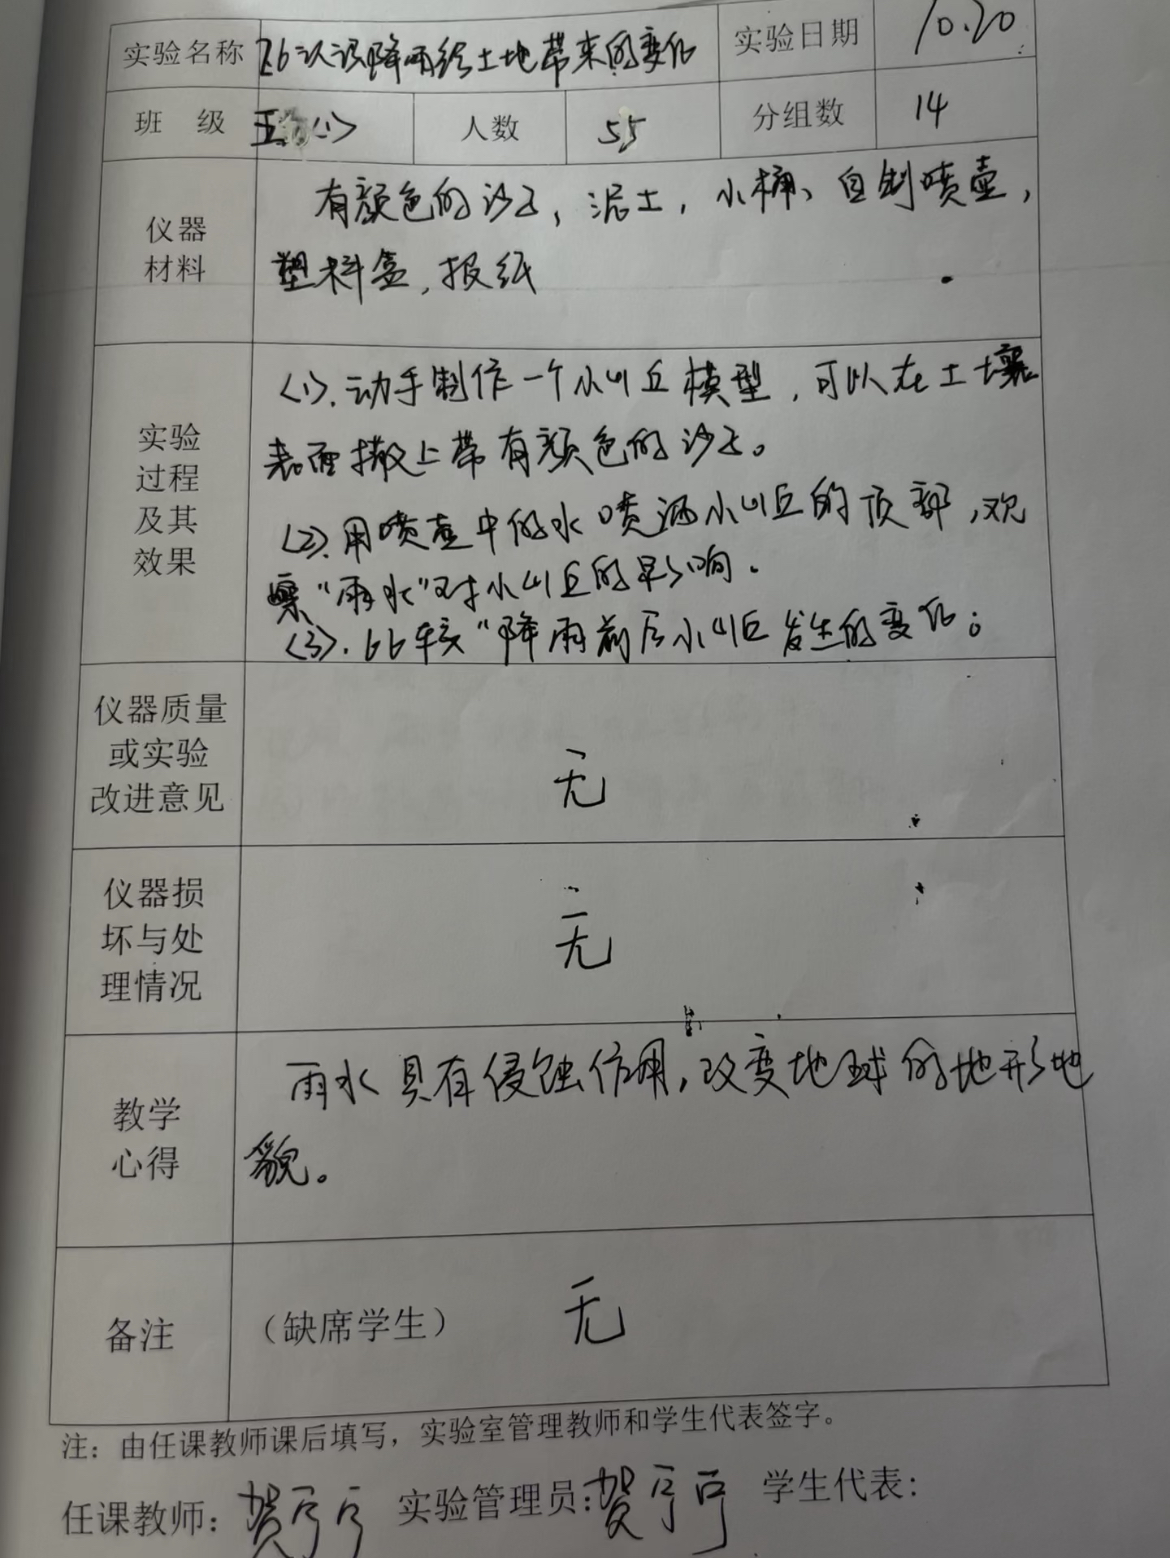 实验名称 26认识降雨给土地带来的变化 实验日期 10.20
班 级 五(1) 人数 55 分组数 14
仪器
材料
有颜色的沙子，泥土，小桶、自制喷壶，
塑料盒，报纸
实验
过程
及其
效果
(1).动手制作一个小山丘模型，可以在土壤
表面撒上带有颜色的沙子。
(2).用喷壶中的水喷洒小山丘的顶部，观
察"雨水"对小山丘的影响.
(3).比较"降雨前后小山丘发生的变化；
仪器质量
或实验
改进意见
无
仪器损
坏与处
理情况
无
教学
心得
雨水具有侵蚀作用，改变地球的地形地
貌。
备注 （缺席学生） 无
注：由任课教师课后填写，实验室管理教师和学生代表签字。
任课教师：贺 实验管理员：贺 学生代表：